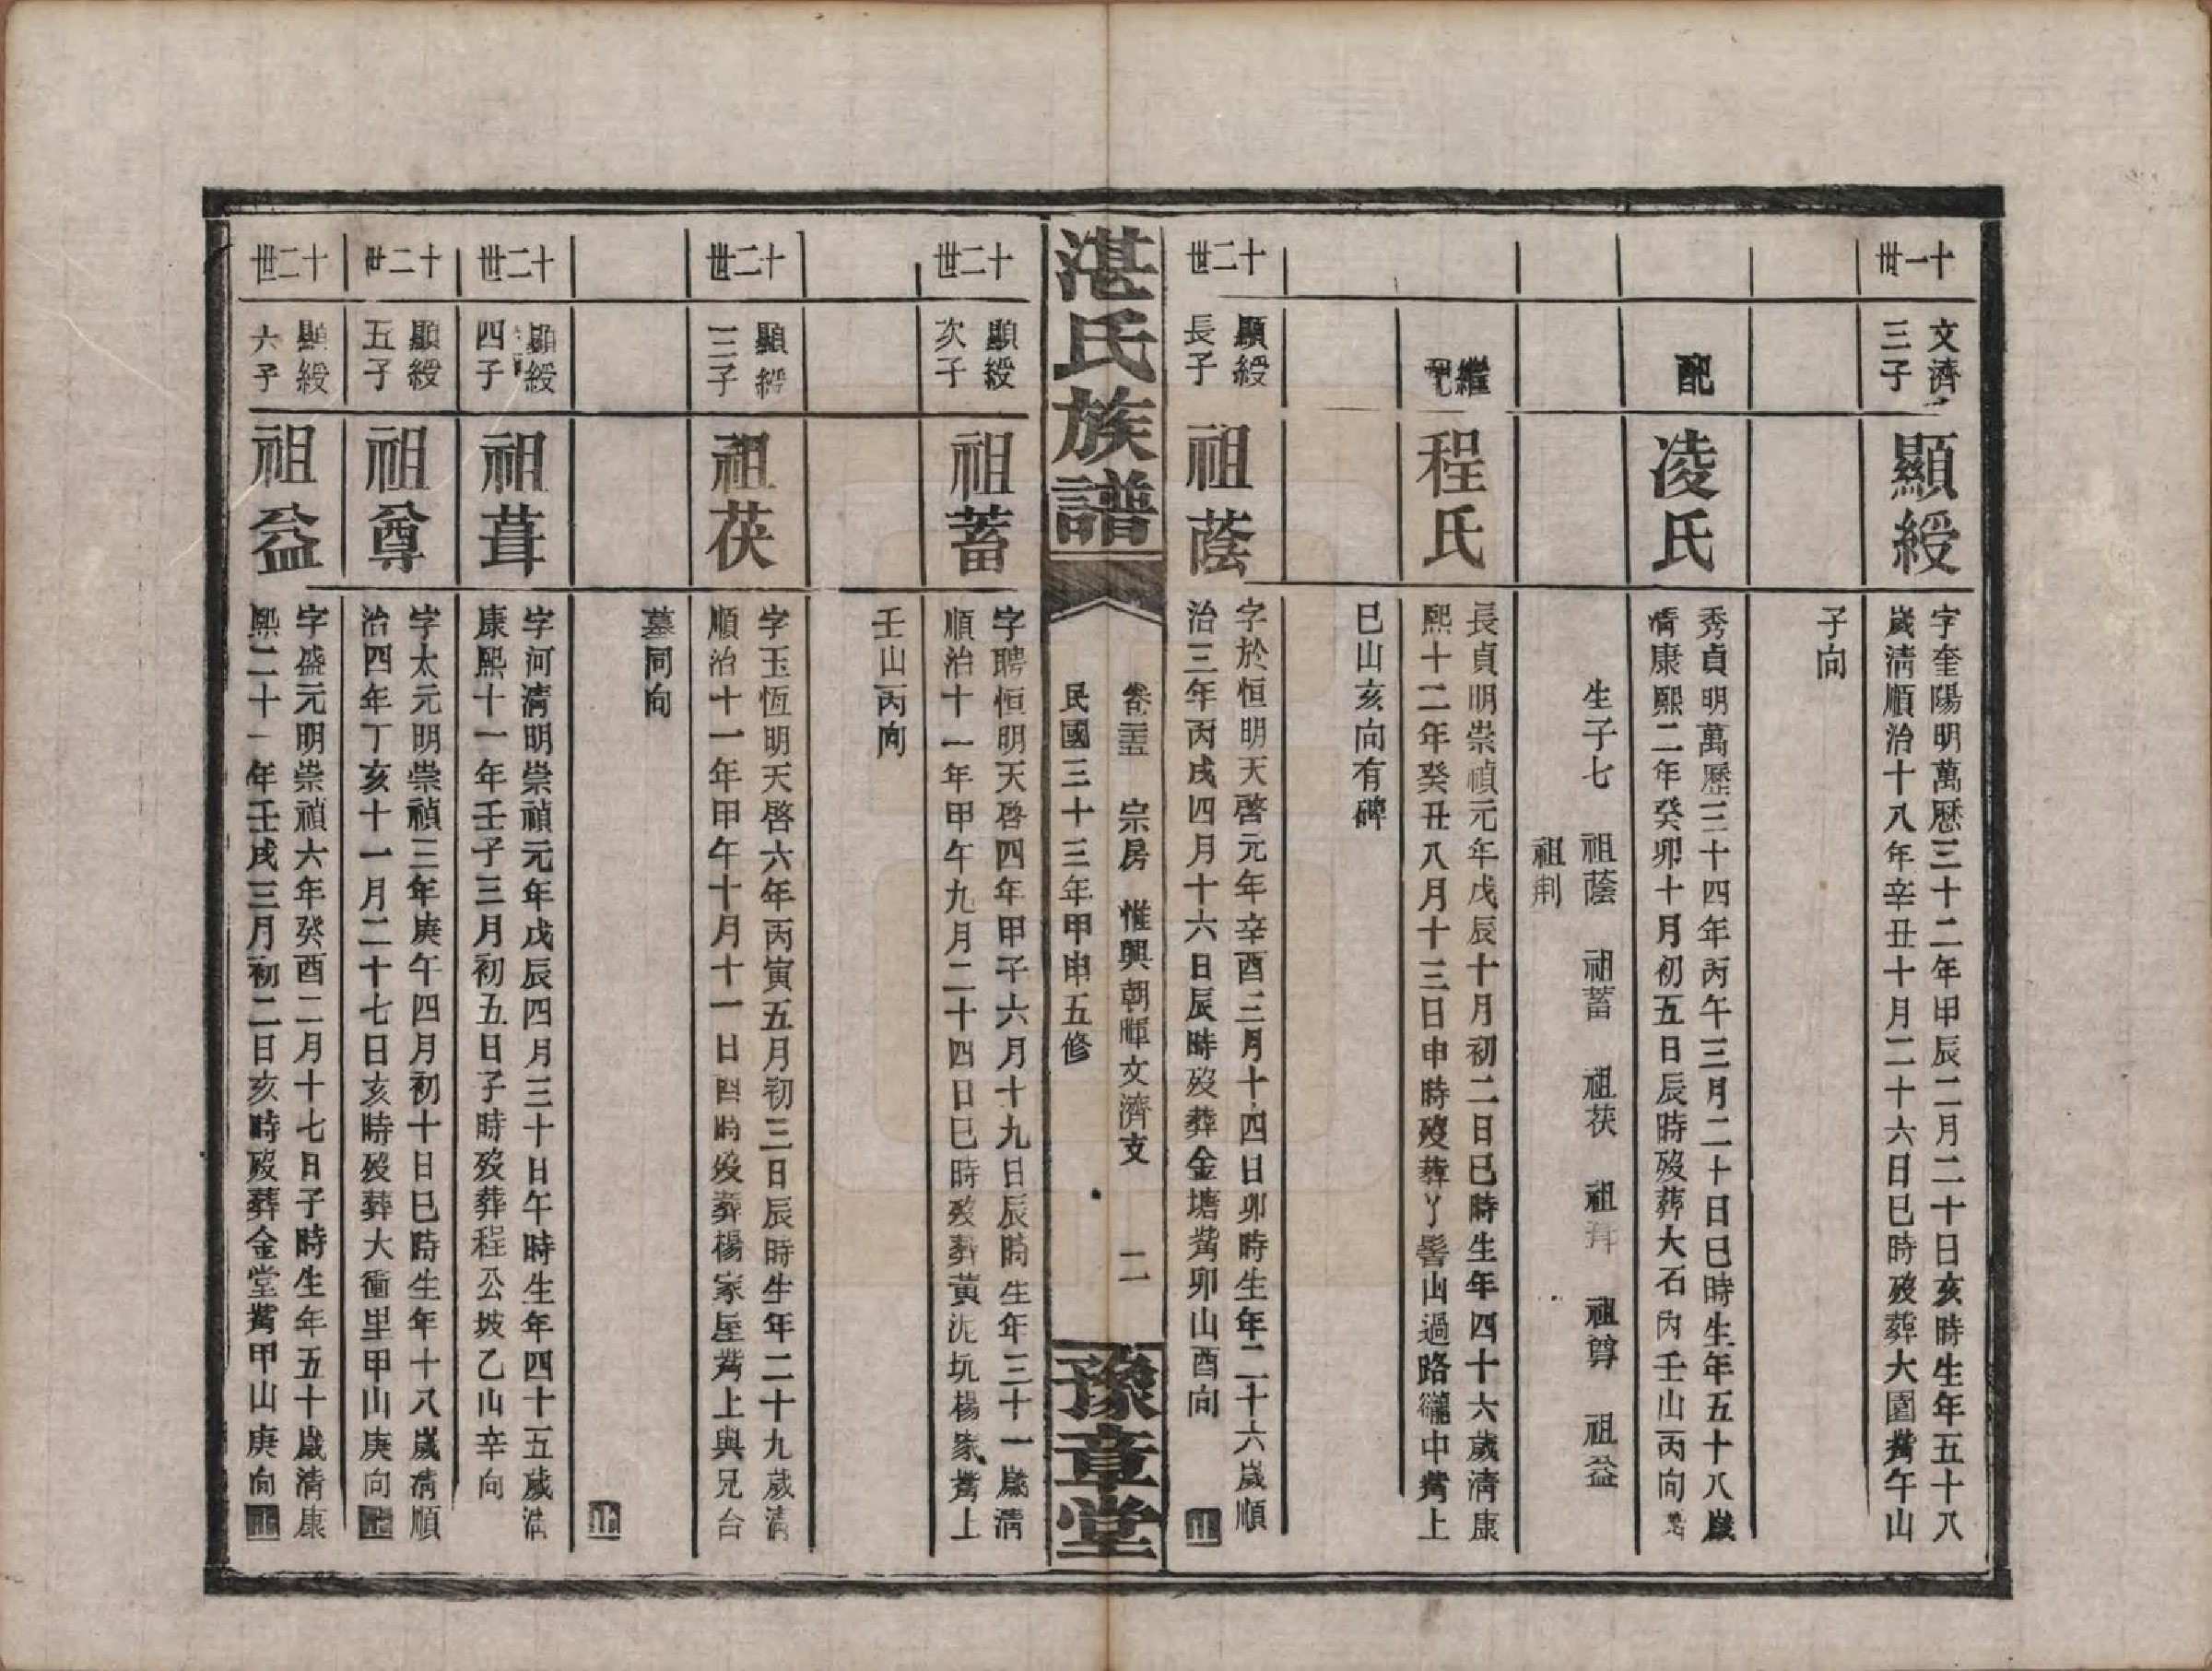 十一世
文濟
三子
顯綬
字奎陽明萬歷三十二年甲辰二月二十日亥時生年五十八
歲清順治十八年辛丑十月二十六日巳時歿葬大園觜午山
子向
配
凌氏
秀貞明萬歷三十四年丙午三月二十日巳時生年五十八歲
清康熙二年癸卯十月初五日辰時歿葬大石內壬山丙向
生子七 祖蔭 祖蓄 祖茯 祖葺 祖尊 祖益
祖荆
繼配
程氏
長貞明崇禎元年戊辰十月初二日巳時生年四十六歲清康
熙十二年癸丑八月十三日申時歿葬丫髻山過路龓中觜上
巳山亥向有碑
十二世
顯綬
長子
祖蔭
字於恒明天啓元年辛酉三月十四日卯時生年二十六歲順
治三年丙戌四月十六日辰時歿葬金塘觜卯山酉向 止
湛氏族譜
卷三五 宗房 惟興朝暉文濟支 二
民國三十三年甲申五修
豫章堂
十二世
顯綬
次子
祖蓄
字聘恒明天啓四年甲子六月十九日辰時生年三十一歲清
順治十一年甲午九月二十四日巳時歿葬黃泥坑楊家觜上
壬山丙向
十二世
顯綬
三子
祖茯
字玉恆明天啓六年丙寅五月初三日辰時生年二十九歲清
順治十一年甲午十月十一日酉時歿葬楊家屋觜上與兄台
墓同向 止
十二世
顯綬
四子
祖葺
字河清明崇禎元年戊辰四月三十日午時生年四十五歲清
康熙十一年壬子三月初五日子時歿葬程公坡乙山辛向
十二世
顯綬
五子
祖尊
字太元明崇禎三年庚午四月初十日巳時生年十八歲清順
治四年丁亥十一月二十七日亥時歿葬大衝里甲山庚向 止
十二世
顯綬
六子
祖益
字盛元明崇禎六年癸酉二月十七日子時生年五十歲清康
熙二十一年壬戌三月初二日亥時歿葬金堂觜甲山庚向 止